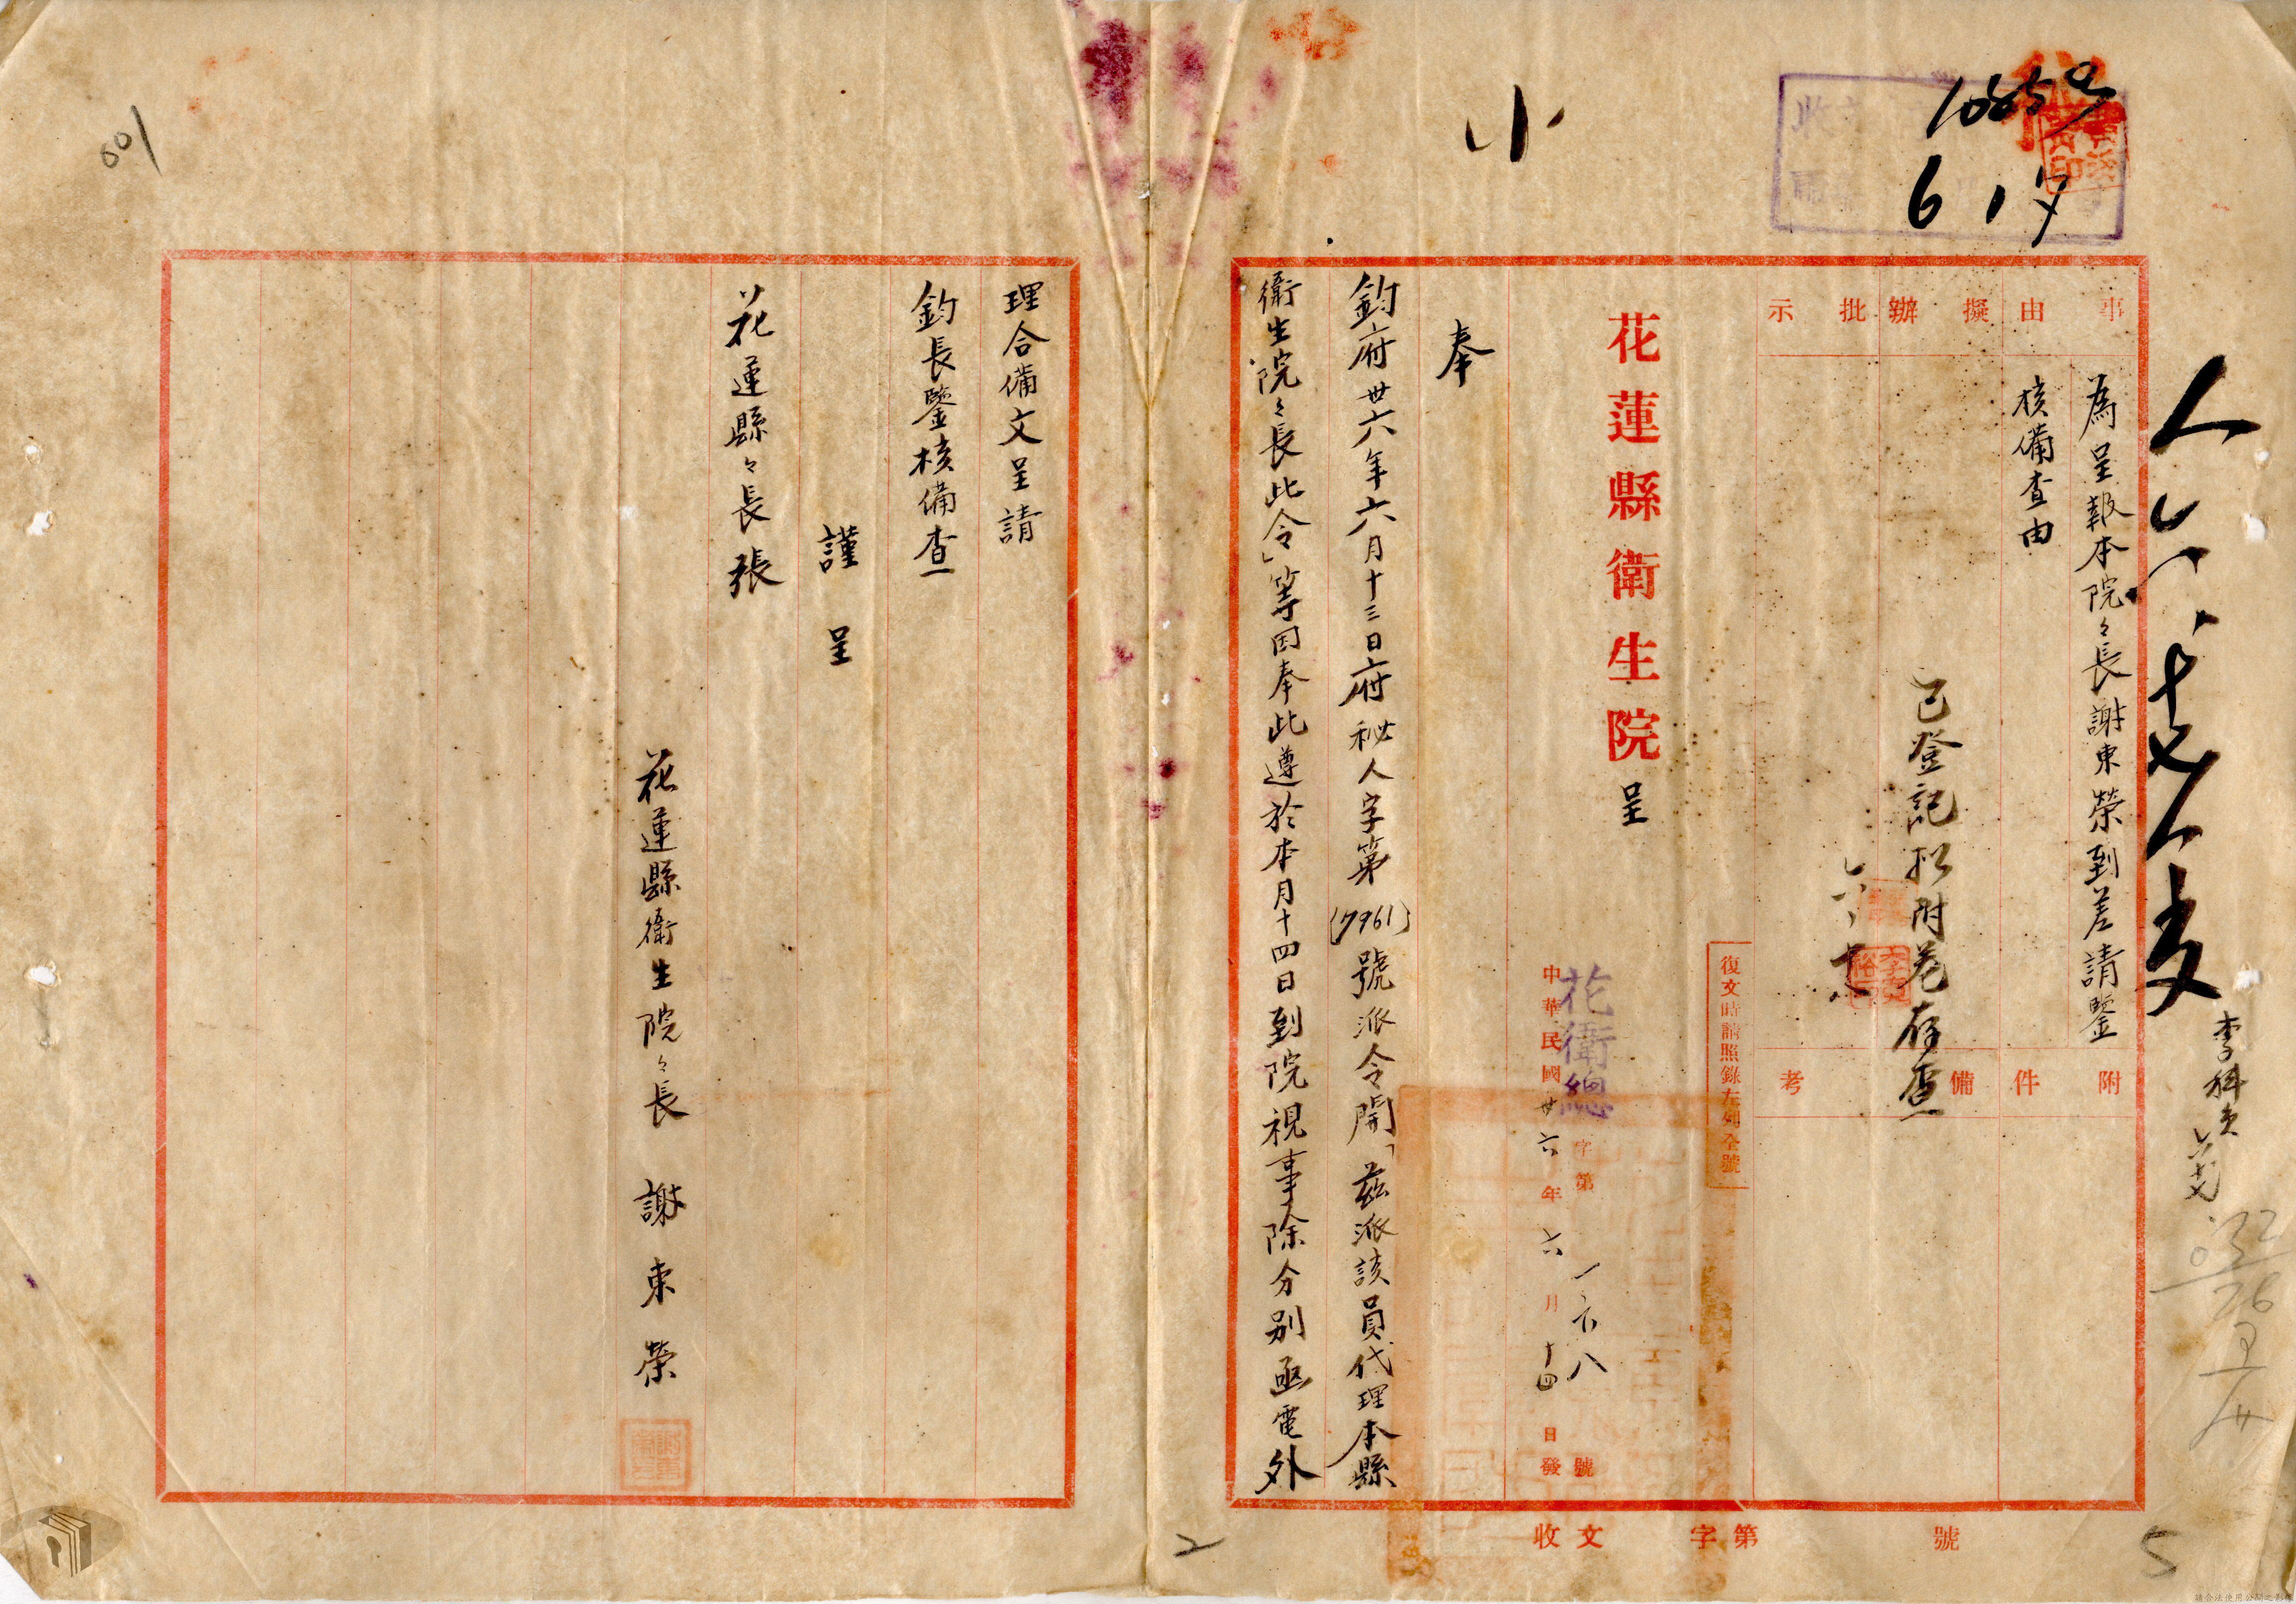 10850
6 17
小
001
事由
擬辦
批示
為呈報本院々長謝東榮到差請鑒
核備查由
已登記擬附卷存查
附件
備考
李科員
花蓮縣衛生院呈
復文時請照錄左列全號
花衛總字第一六八號
中華民國卅六年六月十四日發
奉
鈞府卅六年六月十三日府秘人字第(7961)號派令開「茲派該員代理本縣
衛生院々長此令」等因奉此遵於本月十四日到院視事除分別函電外
理合備文呈請
鈞長鑒核備查
謹呈
花蓮縣々長張
花蓮縣衛生院々長 謝東榮
收文 字第 號
2
5